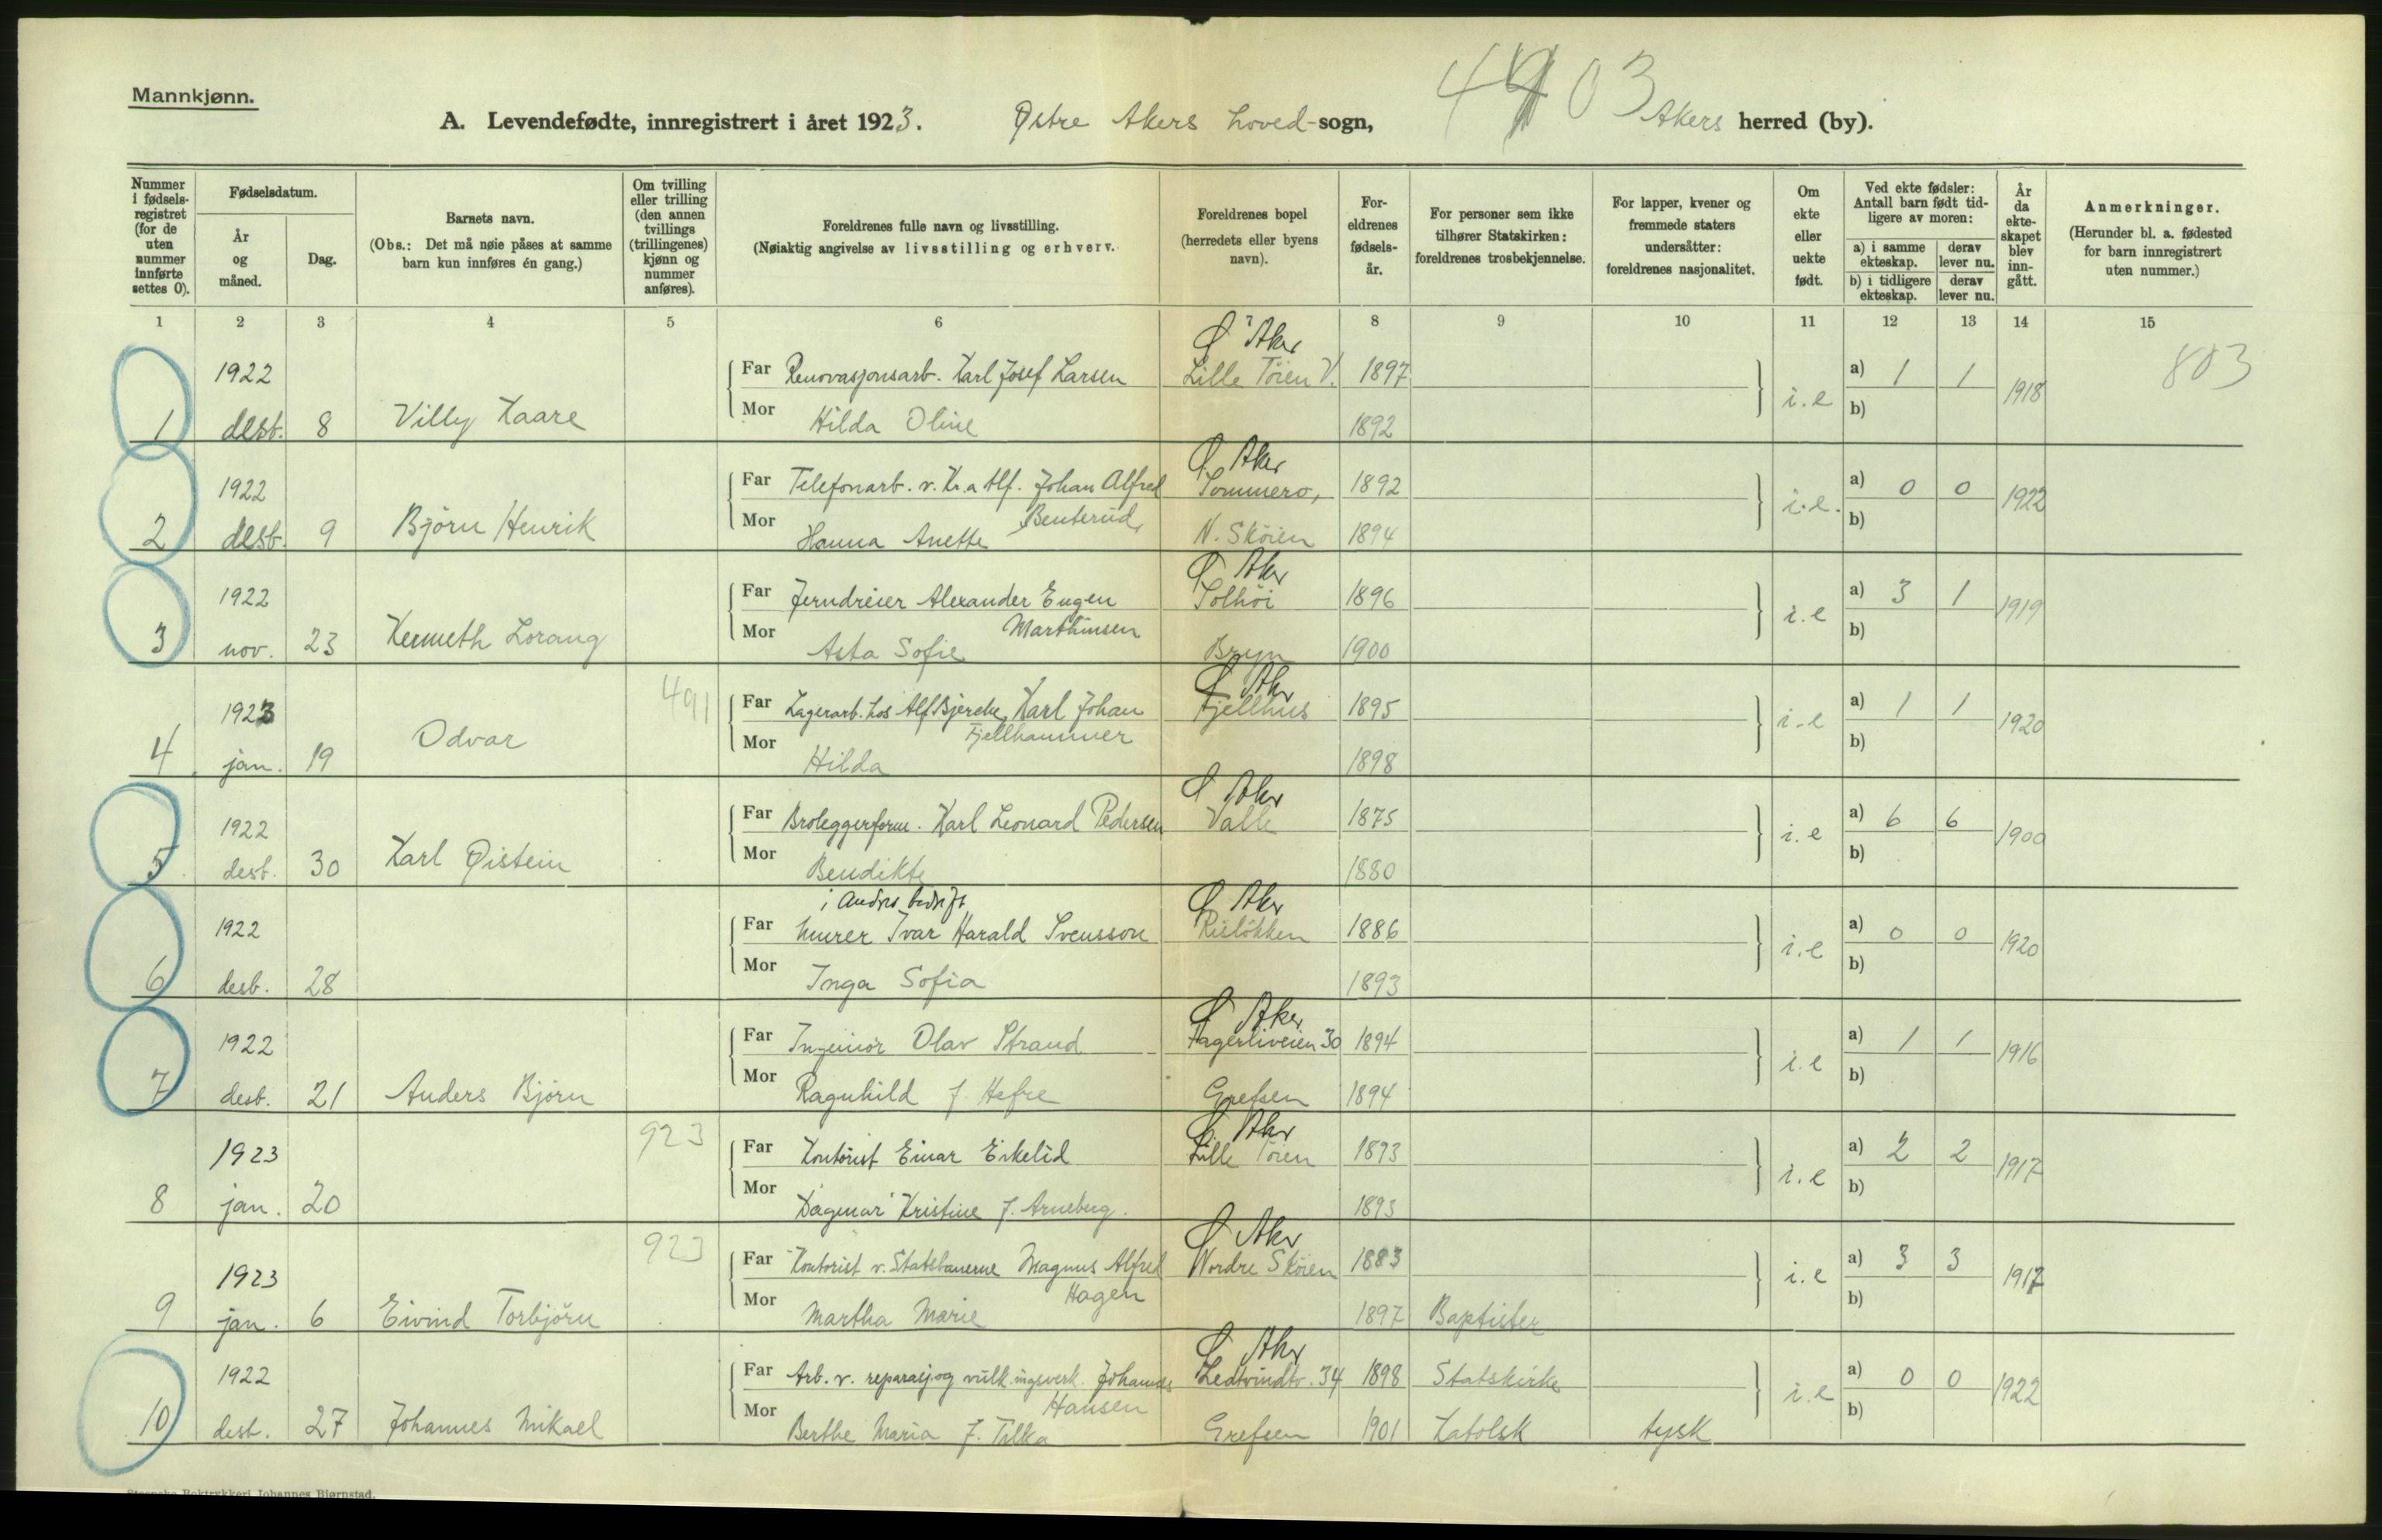 Mannkjønn.
A. Levendefødte, innregistrert i året 1923. Østre Akers hoved-sogn, Akers herred (by).
4903
Nummer i fødsels-registret (for de uten nummer innførte settes 0).
Fødselsdatum.
År og måned.
Dag.
Barnets navn.
(Obs.: Det må nøie påses at samme barn kun innføres én gang.)
Om tvilling eller trilling (den annen tvillings (trillingenes) kjønn og nummer anføres).
Foreldrenes fulle navn og livsstilling.
(Nøiaktig angivelse av livsstilling og erhverv.
Foreldrenes bopel (herredets eller byens navn).
For-eldrenes fødsels-år.
For personer som ikke tilhører Statskirken: foreldrenes trosbekjennelse.
For lapper, kvener og fremmede staters undersåtter: foreldrenes nasjonalitet.
Om ekte eller uekte født.
Ved ekte fødsler: Antall barn født tid-ligere av moren:
a) i samme ekteskap. derav lever nu.
b) i tidligere ekteskap. derav lever nu.
År da ekte-skapet blev inn-gått.
Anmerkninger.
(Herunder bl. a. fødested for barn innregistrert uten nummer.)
1 2 3 4 5 6 7 8 9 10 11 12 13 14 15
803
Ø Aker
1922 Far Renovasjonsarb. Karl Josef Larsen Lille Tøien V. 1897 a) 1 1
1 desb. 8 Villy Kaare Mor Hilda Oline 1892 i.e b) 1918
Ø. Aker
1922 Far Telefonarb. v. Kr.a tlf. Johan Alfred Sommero, 1892 a) 0 0
Benterud,
2 desb. 9 Bjørn Henrik Mor Hanna Anette N. Skøien 1894 i.e. b) 1922
Ø Aker
1922 Far Jerndreier Alexander Eugen Solhöi 1896 a) 3 1
Marthinsen
3 nov. 23 Kenneth Lorang Mor Asta Sofie Bryn 1900 i.e b) 1919
Ø Aker
1923 491 Far Lagerarb. hos Alf Bjercke, Karl Johan Fjellhus 1895 a) 1 1
Fjellhammer
4 jan. 19 Odvar Mor Hilda 1898 i.e b) 1920
Ø Aker
1922 Far Broleggerform. Karl Leonard Pedersen Valle 1875 a) 6 6
5 desb. 30 Karl Øistein Mor Bendikte 1880 i.e b) 1900
i Andres bedrift Ø Aker
1922 Far Murer Ivar Harald Svensson Risløkken 1886 a) 0 0
6 desb. 28 Mor Inga Sofia 1893 i.e b) 1920
Ø Aker
1922 Far Ingeniør Olav Strand Fagerliveien 30 1894 a) 1 1
7 desb. 21 Anders Bjørn Mor Ragnhild f. Hefre Grefsen 1894 i.e b) 1916
Ø Aker
1923 923 Far Kontorist Einar Eikelid Lille Tøien 1893 a) 2 2
8 jan. 20 Mor Dagmar Kristine f. Arneberg. 1893 i.e b) 1917
Ø Aker
1923 923 Far Kontorist v. Statsbanerne Magnus Alfred Nordre Skøien 1883 a) 3 3
Hagen
9 jan. 6 Eivind Torbjörn Mor Martha Marie 1897 Baptister i.e b) 1917
Ø Aker
1922 Far Arb. v. reparasj. og vulk.ingsverk. Johannes 34 1898 Statskirke a) 0 0
Hansen
10 desb. 27 Johannes Mikael Mor Berthe Maria f. Tilka Grefsen 1901 Katolsk tysk i.e b) 1922
Steenske Boktrykkeri Johannes Bjørnstad.